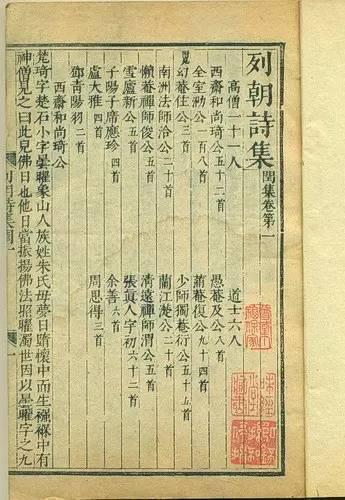 列朝詩集 閏集卷第一
高僧一十一人 道士六人
西齋和尚琦公五十二首 愚菴及公八首
全室泐公一百八首 蒲菴復公九十四首
幻菴住公三首 少師獨菴衍公五十五首
南洲法師洽公二十首 蘭江楚公二十首
懶菴禪師俊公五首 清遠禪師渭公五首
雪廬新公五首 張真人字初六十二首
子陽子席應珍四首 余善六首
盧大雅四首 周思得三首
鄧青陽羽二首
西齋和尚琦公
梵琦字楚石小字曇曜象山人族姓朱氏母夢日墮懷中而生襁褓中有
神僧見之曰此兒佛日也他日當振揚佛法照曜濁世因以曇曜字之九